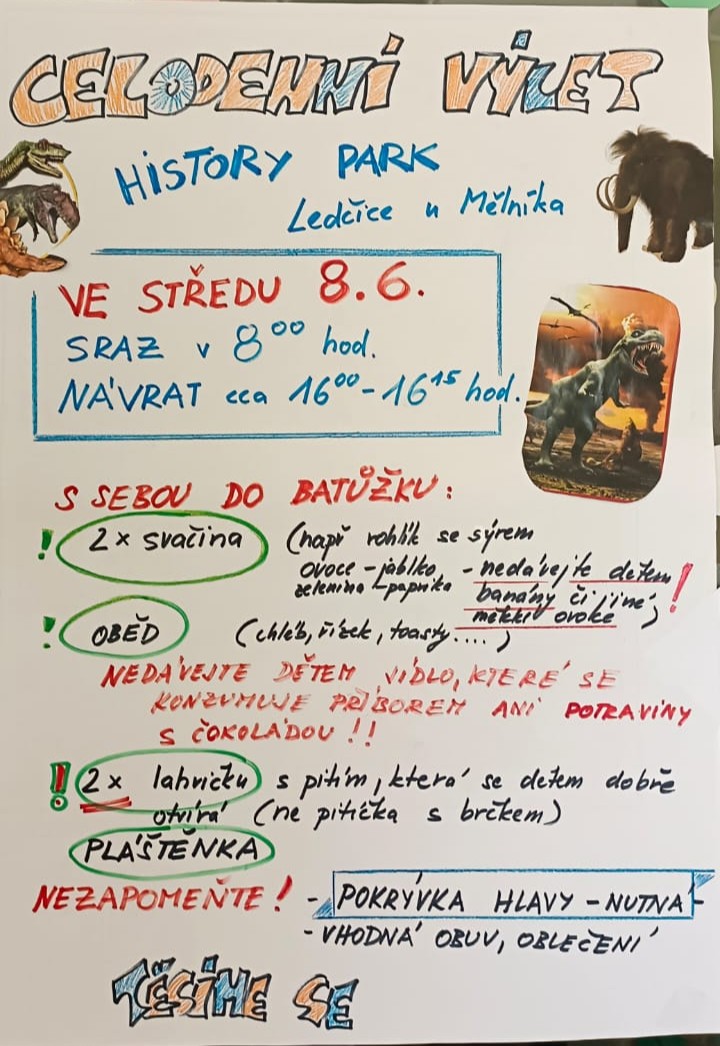 CELODENNÍ VÝLET
HISTORY PARK
Ledčice u Mělníka
VE STŘEDU 8.6.
SRAZ v 8⁰⁰ hod.
NÁVRAT cca 16⁰⁰ - 16¹⁵ hod.
S SEBOU DO BATŮŽKU:
! 2x svačina (např rohlík se sýrem
ovoce - jablko, - nedávejte dětem !
zelenina - paprika banány či jiné
měkké ovoce)
! OBĚD (chléb, řízek, toasty....)
NEDÁVEJTE DĚTEM JÍDLO, KTERÉ SE
KONZUMUJE PŘÍBOREM ANI POTRAVINY
S ČOKOLÁDOU !!
! 2x lahvičku s pitím, která se dětem dobře
otvírá (ne pitíčka s brčkem)
PLÁŠTĚNKA
NEZAPOMEŇTE! - POKRÝVKA HLAVY - NUTNÁ -
- VHODNÁ OBUV, OBLEČENÍ
TĚŠÍME SE